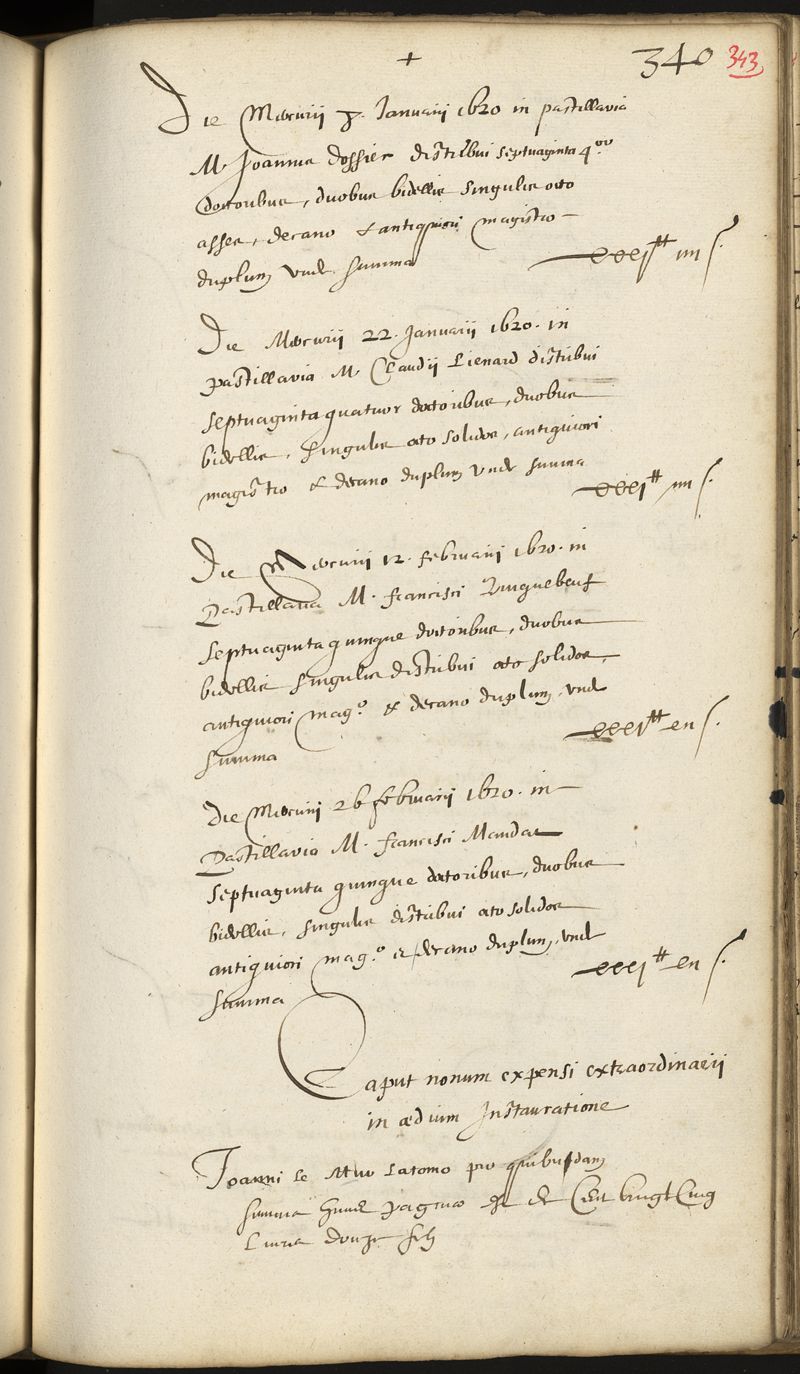 +
340 343
Die Mercurii 8. Januarii 1620 in pastillaria
M. Joannis Dossier distribui septuaginta 4.or
doctoribus, duobus bidellis singulis octo
asses, decano & antiquiori magistro
duplum unde summa xxxj ₶ iiii ſ.
Die Mercurii 22. Januarii 1620. in
Pastillaria M. Claudii Lienard distribui
septuaginta quatuor doctoribus, duobus
bidellis, singulis octo solidos, antiquiori
magistro & decano duplum unde summa
xxxj ₶ iiii ſ.
Die Mercurii 12. februarii 1620. in
Pastillaria M. francisci
septuaginta quinque doctoribus, duobus
bidellis singulis distribui octo solidos,
antiquiori mag.o & decano duplum, unde
summa xxxj ₶ xii ſ.
Die Mercurii 26 februarii 1620. in
Pastillaria M. francisci Mandat
septuaginta quinque doctoribus, duobus
bidellis, singulis distribui octo solidos
antiquiori mag.o et decano duplum, unde
summa xxxj ₶ xii ſ.
Caput nonum expensi extraordinarii
in ædium Instauratione
Joanni le latomo pro quibusdam
summa huius paginæ est de Cent vingt Cinq
Livres douze sols